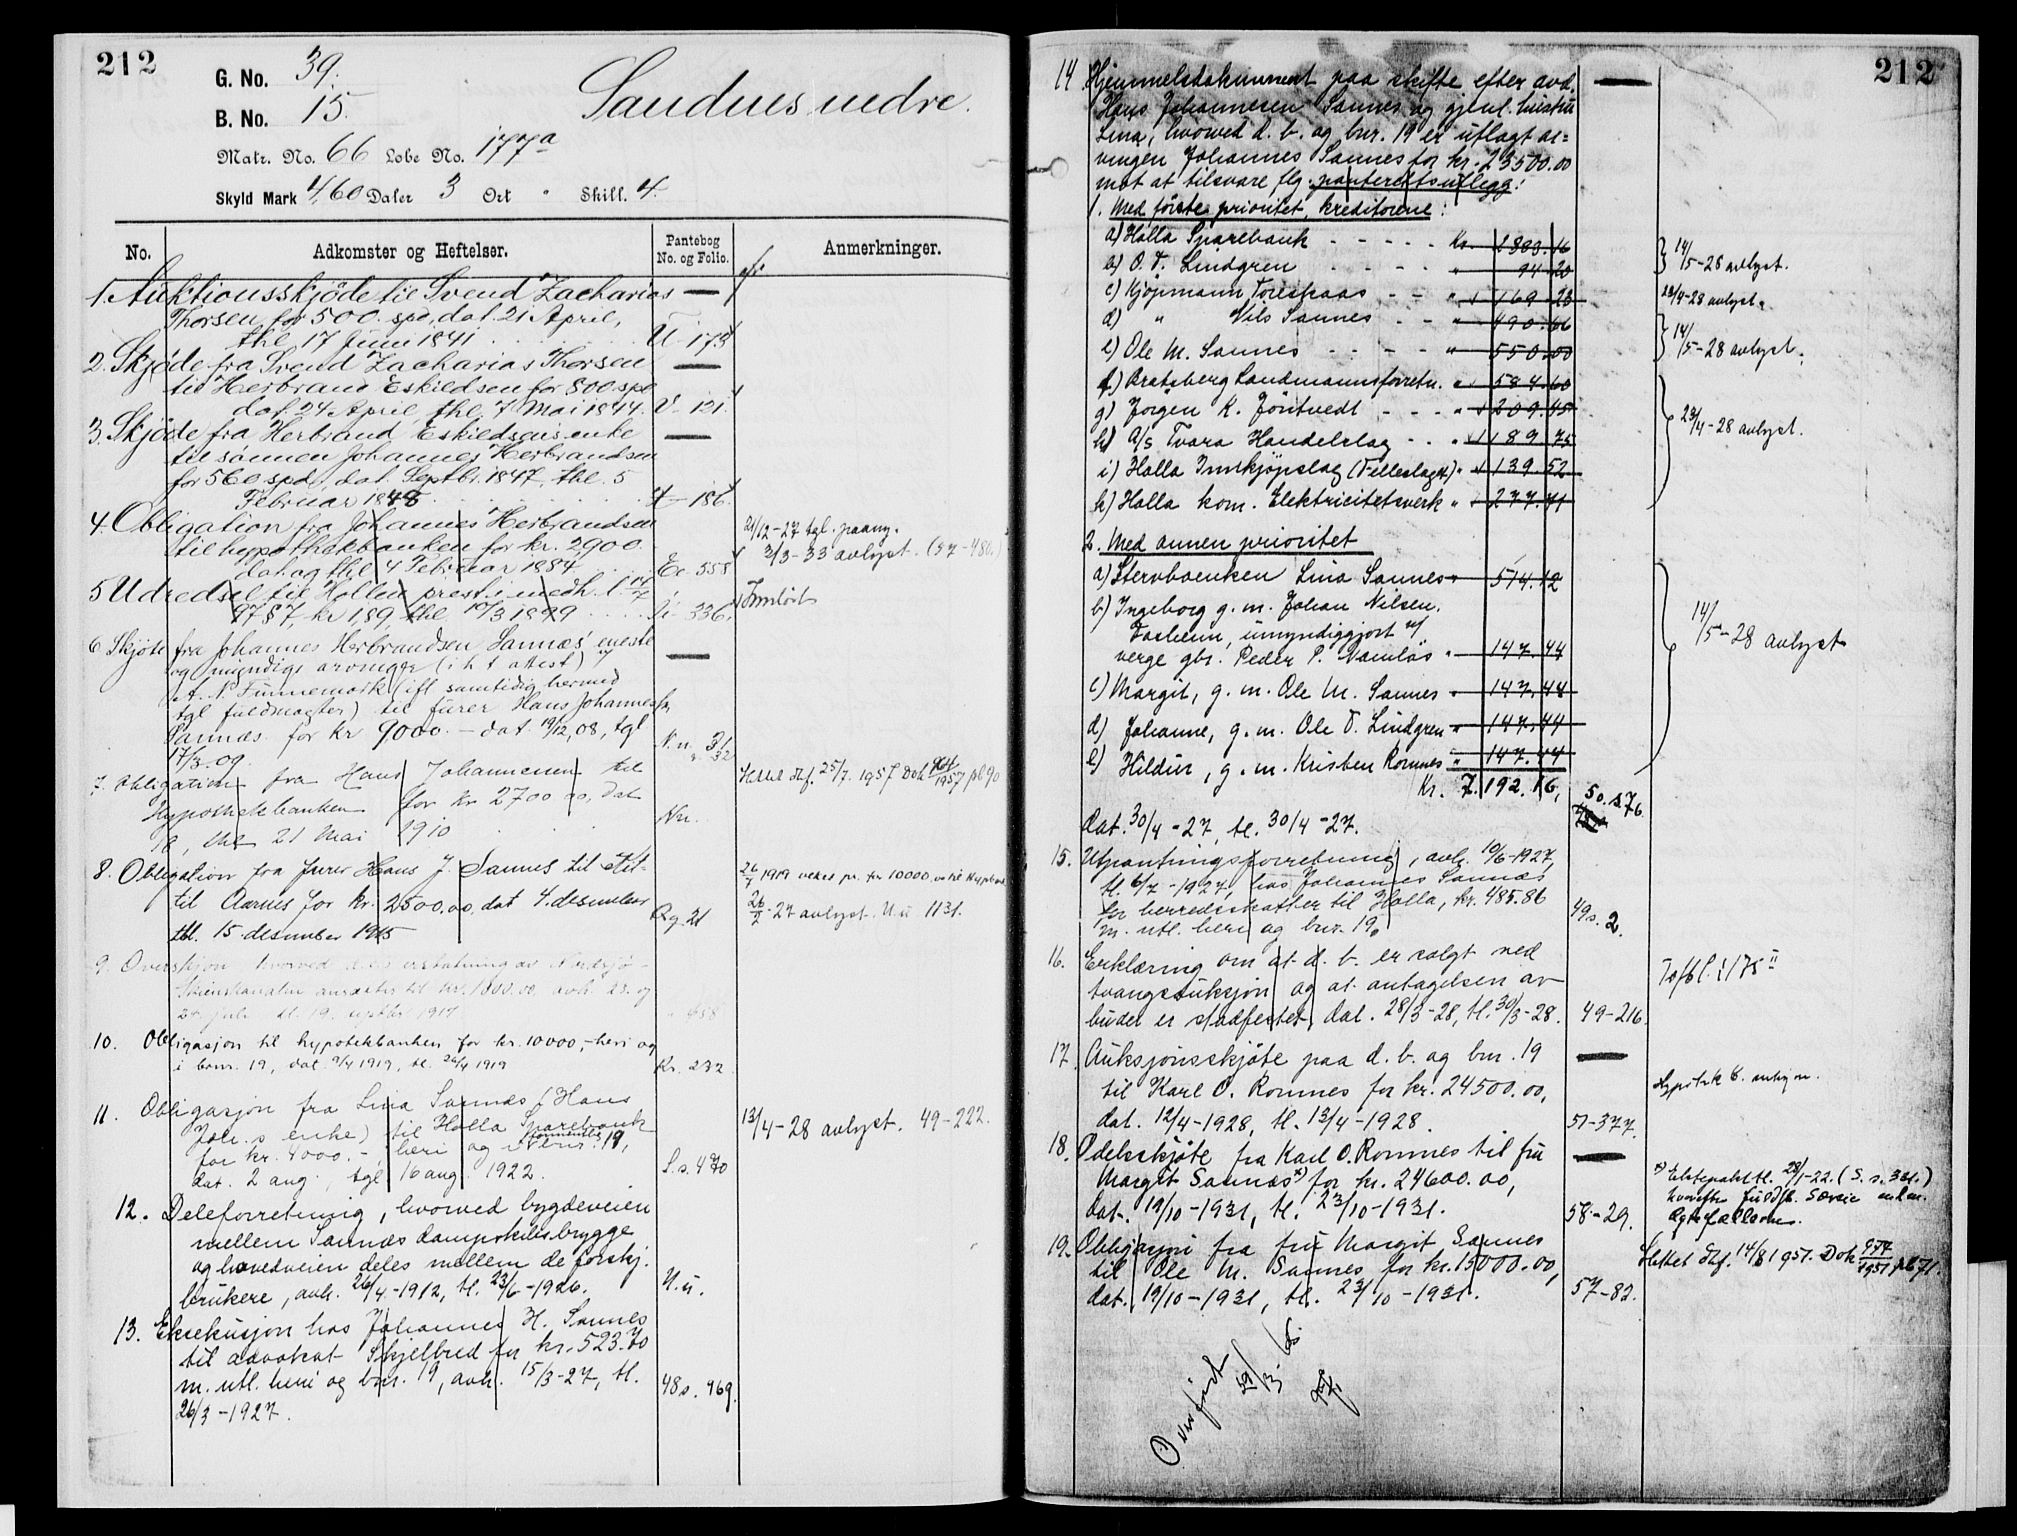 212
G. No. 39.
B. No. 15.
Sandnes nedre.
Matr. No. 66 Løbe No. 177a
Skyld Mark 4,60 Daler 3 Ort " Skill. 4.
No. Adkomster og Heftelser. Pantebog No. og Folio. Anmerkninger.
1. Auktionsskjøde til Svend Zacharias
Thorsen for 500 spd, dat. 21 April,
thl. 17 Juni 1841 U - 173
2. Skjøde fra Svend Zacharias Thorsen
til Herbrand Eskildsen for 800 spd
dat. 24 April, thl. 7 Mai 1844. V - 121.
3. Skjøde fra Herbrand Eskildsens enke
til sønnen Johannes Herbrandsen
for 560 spd, dat. Septbr. 1847, thl. 5
Februar 1848 - 186.
4. Obligation fra Johannes Herbrandsen
til hypothekbanken for kr. 2900
dat. og thl. 4 Februar 1884 Ee - 558
21/12-27 tgl. paany.
3/3-33 avlyst. (57-480.)
5 Udredsel til Hollen prest. i medh. l 14/7
9787, kr 1,89, thl 10/3 1899 336.
Innløst
6 Skjøte fra Johannes Herbrandsen Sannæs' eneste
og myndige arvinger (i h t attest) v/
A. N. Finnemark (ifl samtidig hermed
tgl fuldmagter) til furer Hans Johannessen
Sannæs for kr 9000.- dat. 19/12,08, tgl
17/3.09. N.n. 31
" 32
7. Obligation fra Hans Johannesen til
Hypothekbanken for kr 2700.00, dat
18, thl 21 Mai 1910 Nn.
Slettet dhf. 25/7. 1957 Dok 1957 pl 90
8. Obligation fra furer Hans J. Sannes til
til Aarnes for kr. 2500.00, dat 4. desember
thl. 15. desember 1915 Qq. 21
26/7 1919 veket pr. for 10000,00 til Hypbank
26/2-27 avlyst. U.u 1131.
9. Overskjøn, hvorved erstatning av Nordsjø-
Skienskanalen ansættes til kr. 1000.00, avh. 23. og
24. juli tl. 19. septbr 1917 " 658
10. Obligasjon til hypotekbanken for kr. 10000,- heri og
i brnr. 19, dat. 9/4 1919, tl. 26/4 1919 Rr. 232
11. Obligasjon fra Lina Sannæs (Hans
Joh.s enke) til Holla Sparebank
for kr. 4000.- heri og 19,
dat. 2 aug., tgl 16 aug. 1922. S.s. 470
13/4-28 avlyst. 49-222.
12. Deleforretning, hvorved bygdeveien
mellem Sannæs dampskibsbrygge
og hovedveien deles mellem de forskj.
brukere, avh. 26/4-1912, tl. 23/6-1926. U.u.
13. Eksekusjon hos Johannes H. Sannes
til advokat Skjelbred for kr. 523.70
m. utl. heri og bnr. 19, avh. 15/3-27, tl.
26/3-1927. 48s. 469.
212
14 Hjemmelsdokument paa skifte efter avd.
Hans Johannesen Sannes og gjenl. hustru
Lina, hvorved d. b. og bnr. 19 er utlagt ar=
vingen Johannes Sannes for kr. 23500.00
mot at tilsvare flg. panteretsutlegg:
1. Med første prioritet, kreditorene:
a) Holla Sparebank - - - - - kr. 2803.16
b) O. T. Lindgren - - - - " 94.20
14/5-28 avlyst.
c) Kjøpmann Torespaas - - " 1169.23
23/4-28 avlyst.
d) " Nils Sannes - - " 490.66
e) Ole M. Sannes - - - - " 550.00
14/5-28 avlyst.
f) Bratsberg Landmannsforretn. " 584.60
g) Jørgen K. Jøntvedt - - - " 209.45
h) A/S Tvara Handelslag - - " 189.75
i) Holla Innkjøpslag (Felleslaget) " 139.52
k) Holla kom. Elektricitetsverk " 277.71
23/4-28 avlyst.
2. Med annen prioritet
a) Stervboenken Lina Sannes " 514.12
b) Ingeborg g. m. Johan Nilsen,
umyndiggjort v/
verge gbr. Peder P. Namløs " 147.44
c) Margit, g. m. Ole M. Sannes " 147.44
d) Johanne, g. m. Ole T. Lindgren " 147.44
e) Hildur, g. m. Kristen Romnes " 147.44
14/5-28 avlyst
Kr. 7.192.16,
dat. 30/4-27, tl. 30/4-27. 50.s.76.
15. Utpantningsforretning, avh. 10/6-1927,
tl. 6/7-1927, hos Johannes Sannæs
for herredsskatter til Holla, kr. 485.86
m. utl. heri og bnr. 19. 49s. 2.
16. Erklæring om at d. b. er solgt ved
tvangsauksjon og at antagelsen av
budet er stadfestet, dat. 28/3-28, tl. 30/3-28. 49-216.
17 Auksjonsskjøte paa d. b. og bnr. 19
til Karl O. Romnes for kr. 24500.00,
dat. 12/4-1928, tl. 13/4-1928. 51-377.
18. Odelsskjøte fra Karl O. Romnes til fru
Margit Sannæs x) for kr. 24600.00,
dat. 19/10-1931, tl. 23/10-1931. 58-29.
x) Ektepakt tl. 28/1-22. (S. s. 321.)
hvorefter fuldst. Særeie mlm.
Ægtefællerne.
19. Obligasjon fra fru Margit Sannes
til Ole M. Sannes for kr. 15000.00,
dat. 19/10-1931, tl. 23/10-1931. 57-82.
Slettet dhf. 14/8 1951. Dok 977/1951 pl 71.
Overført